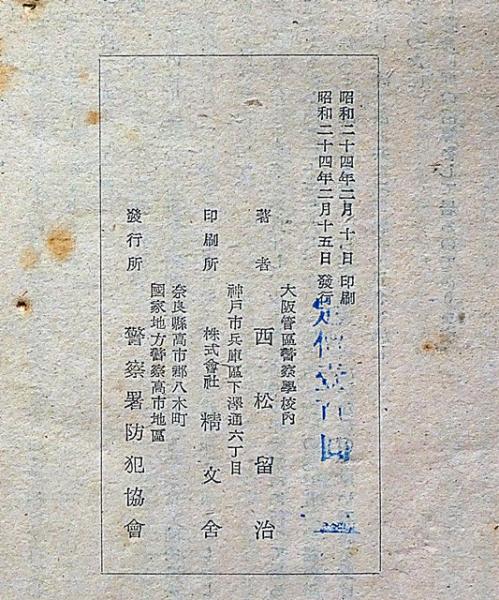 昭和二十四年二月十日 印刷
昭和二十四年二月十五日 發行
大阪管區警察學校内
著者 西松留治
神戸市兵庫區下澤通六丁目
印刷所 株式會社 精文舍
奈良縣高市郡八木町
國家地方警察高市地區
發行所 警察署防犯協會